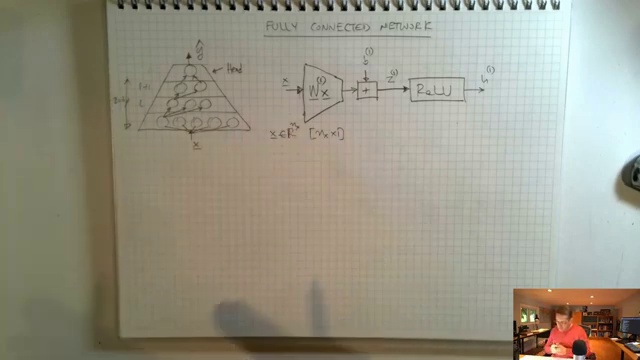 FULLY CONNECTED NETWORK
Head
x
x
W⁽¹⁾ x
b⁽¹⁾
+
z⁽¹⁾
ReLU
h⁽¹⁾
x ∈ R^{n_x} [n_x × 1]